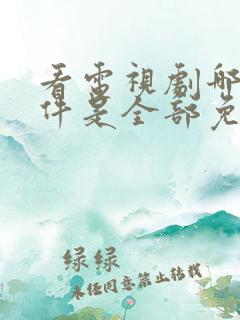 看電視劇哪
件是全部免
绿绿
未任同意禁止转载